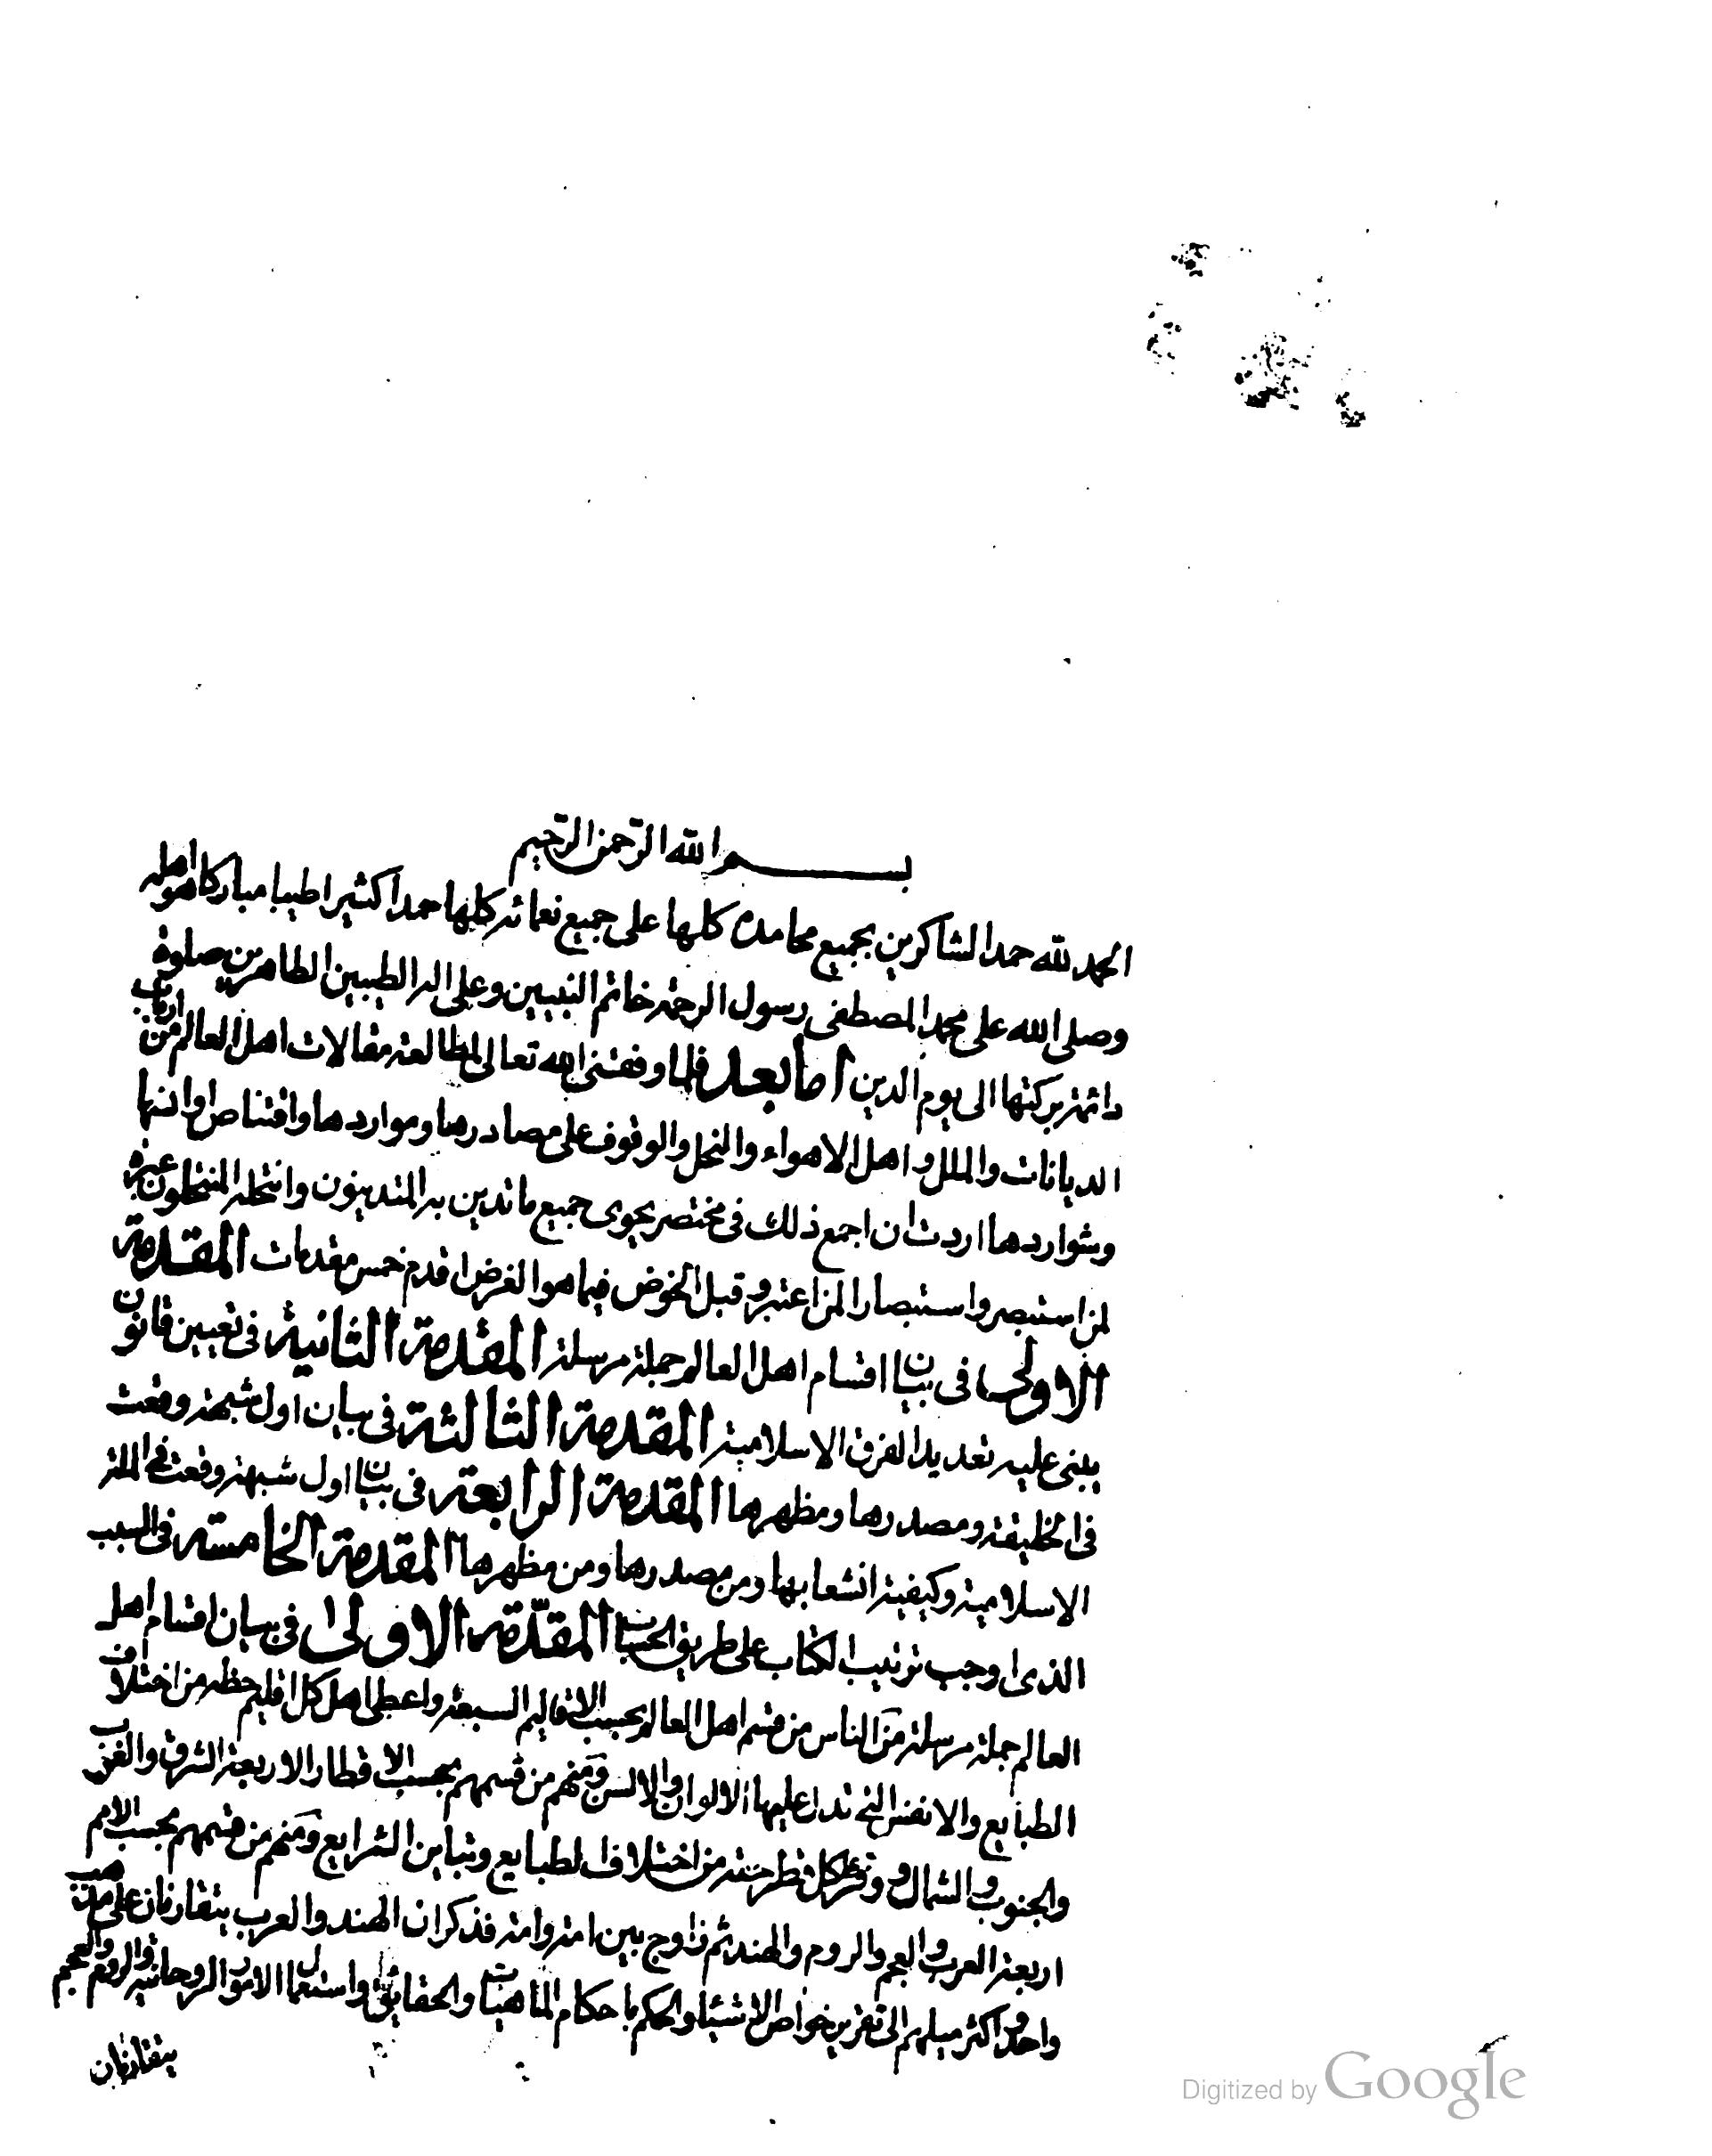 بسم الله الرحمن الرحيم
الحمد لله حمد الشاكرين بجميع محامده كلها على جميع نعمائه كلها حمدا كثيرا طيبا مباركا كما هو اهله
وصلى الله على محمد المصطفى رسول الرحمة خاتم النبيين وعلى اله الطيبين الطاهرين صلوة
دائمة بركتها الى يوم الدين اما بعد فلما وفقنى الله تعالى لمطالعة مقالات اهل العالم من ارباب
الديانات والملل و اهل الاهواء والنحل والوقوف على مصادرها ومواردها واقتناص اوانسها
وشواردها اردت ان اجمع ذلك فى مختصر يحوى جميع ما تدين به المتدينون وانتحله المنتحلون عبرة
لمن استبصر واستبصارا لمن اعتبر و قبل الخوض فيما هو الغرض اقدم خمس مقدمات المقدمة
الاولى فى بيان اقسام اهل العالم جملة مرسلة المقدمة الثانية فى تعيين قانون
يبنى عليه تعديد الفرق الاسلامية المقدمة الثالثة فى بيان اول شبهة وقعت
فى الخليقة ومصدرها ومظهرها المقدمة الرابعة فى بيان اول شبهة وقعت فى الملة
الاسلامية وكيفية انشعابها ومن مصدرها ومن مظهرها المقدمة الخامسة فى السبب
الذى اوجب ترتيب الكتاب على طريق الحساب المقدّمة الاولى فى بيان اقسام اهل
العالم جملة مرسلة من الناس من قسم اهل العالم بحسب الاقاليم السبعة واعطى اهل كل اقليم حظه من اختلاف
الطبايع والانفس التى تدل عليها الالوان والالسن ومنهم من قسمهم بحسب الاقطار الاربعة الشرق والغرب
والجنوب والشمال و وفر على كل قطر حقه من اختلاف الطبايع وتباين الشرايع ومنهم من قسمهم بحسب الامم
اربعة العرب والعجم والروم والهند ثم زاوج بين امة وامة فذكر ان الهند والعرب يتقاربان على مذهب
واحد و اكثر ميلهم الى تقرير خواص الاشياء والحكم باحكام الماهيات والحقايق واستعمال الامور الروحانية والروم والعجم
يتقاربان
Digitized by Google